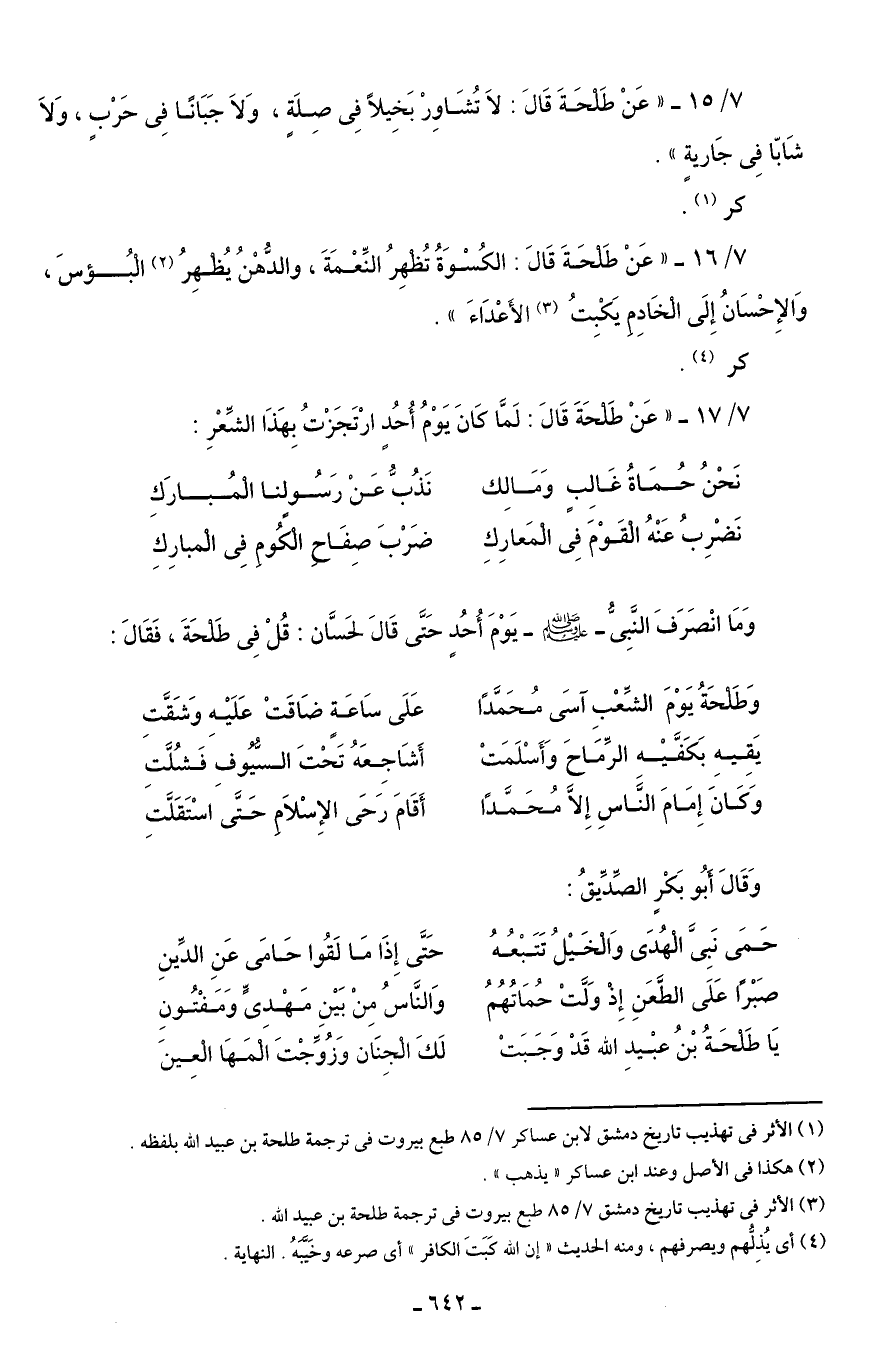 ٧/ ١٥ ـ « عَنْ طَلْحَـةَ قَالَ : لاَ تُشَـاوِرْ بَخِيلاً فِى صِـلَةٍ ، وَلاَ جَبَانًـا فِى حَرْبٍ ، وَلاَ
شَابّا فِى جَارِيةٍ » .
كر (١) .
٧/ ١٦ ـ « عَنْ طَلْحَـةَ قَالَ : الكُسْوَةُ تُظْهِرُ النِّعْـمَةَ ، والدُّهْنُ يُظْهِرُ (٢) البُـــؤسَ ،
وَالإِحْسَانُ إِلَى الْخَادِمِ يَكْبِتُ (٣) الأَعْدَاءَ » .
كر (٤) .
٧/ ١٧ ـ « عَنْ طَلْحَةَ قَالَ : لَمَّا كَانَ يَوْمُ أُحُدٍ ارْتَجَزْتُ بِهَذَا الشِّعْرِ :
نَحْنُ حُـمَـاةُ غَـالِبٍ وَمَـالِكِ نَذُبُّ عَـنْ رَسُـولِنـا الْمُـبـــارَكِ
نَضْرِبُ عَنْهُ الْقَـوْمَ فِى الْمَعارِكِ ضَرْبَ صِفَـاحِ الْكُومِ فِى الْمبارِكِ
وَمَا انْصَرَفَ النَّبِىُّ ـ ﷺ ـ يَوْمَ أُحُدٍ حَتَّى قَالَ لِحَسَّان : قُلْ فِى طَلْحَةَ ، فَقَالَ :
وَطَلْحَةُ يَوْمَ الشِّعْبِ آسَى مُـحَمَّدًا عَلَى سَاعَـةٍ ضَاقَتْ عَلَيْـهِ وَشَقَّتِ
يَقِيـهِ بِكَفَّيْـهِ الرِّمَـاحَ وَأَسْلَمَتْ أَشَاجِـعَهُ تَحْتَ السُّيُوفِ فَـشُلَّتِ
وَكَـانَ إِمَـامَ النَّـاسِ إِلاَّ مُـحَـمَّـدًا أَقَامَ رَحَى الإِسْلاَمِ حَـتَّى اسْتَقَلَّتِ
وَقَالَ أَبُو بَكْرٍ الصِّدِّيقُ :
حَـمَى نَبِىَّ الْهُدَى وَالْخَيْلُ تَتَبْعُـهُ حَتَّى إِذَا مَـا لَقُوا حَـامَى عَنِ الدِّينِ
صَبْرًا عَلَى الطَّعَنِ إِذْ وَلَّتْ حُمَاتُهُمُ وَالنَّاسُ مِنْ بَيْنِ مَـهْـدِىٍّ وَمَـفْتُـونِ
يَا طَلْحَةُ بْنُ عبـيدِ الله قَدْ وَجَـبَتْ لَكَ الْجِنَان وَزُوِّجْتَ الْمَـهَا الْعِـينَ
(١) الأثر فى تهذيب تاريخ دمشق لابن عساكر ٧/ ٨٥ طبع بيروت فى ترجمة طلحة بن عبيد الله بلفظه .
(٢) هكذا فى الأصل وعند ابن عساكر « يذهب » .
(٣) الأثر فى تهذيب تاريخ دمشق ٧/ ٨٥ طبع بيروت فى ترجمة طلحة بن عبيد الله .
(٤) أى يُذِلُّهم ويصرفهم ، ومنه الحديث « إن الله كَبَتَ الكافر » أى صرعه وخَيَّبَهُ . النهاية .
ـ ٦٤٢ ـ